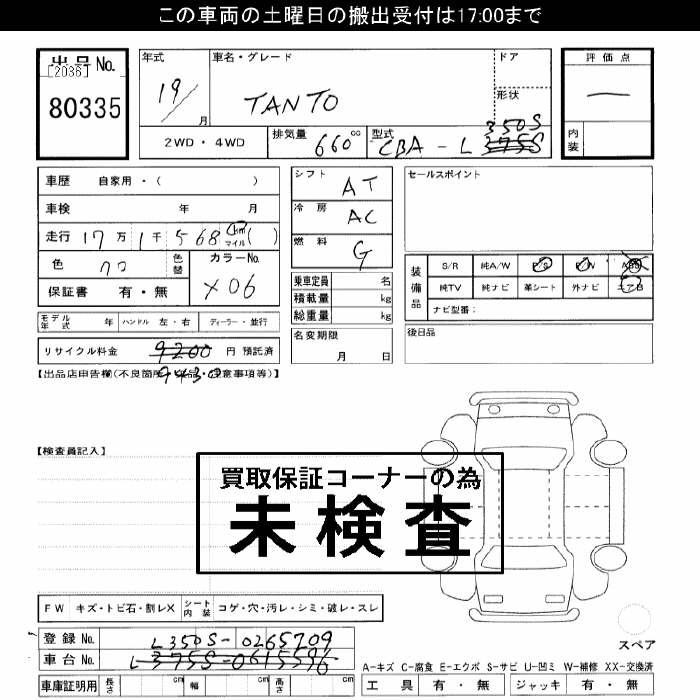 この車両の土曜日の搬出受付は17:00まで
出品No.
[2036]
80335
年式
19/
月
車名・グレード
TANTO
ドア
形状
評価点
—
内装
2WD・4WD
排気量 660 cc
型式 CBA-L 350S
375S
車歴 自家用・( )
車検 年 月
走行 17万1千568 km マイル ( )
色 クロ
色替
カラーNo.
X06
保証書 有・無
シフト AT
冷房 AC
燃料 G
乗車定員 名
積載量 kg
総重量 kg
名変期限
月 日
セールスポイント
装備品
S/R 純A/W P/S P/W ABS
純TV 純ナビ 革シート 外ナビ エアB
ナビ型番:
後日品
モデル年式 年 ハンドル 左・右 ディーラー・並行
リサイクル料金 9200 円 預託済
9430
【出品店申告欄(不良箇所・欠品・注意事項等)】
【検査員記入】
買取保証コーナーの為
未検査
FW キズ・トビ石・割レX シート内装 コゲ・穴・汚レ・シミ・破レ・スレ
登録No. L350S-0265709
車台No. L375S-0615596
車庫証明用 長さ cm 幅 cm 高さ cm
スペア
A-キズ C-腐食 E-エクボ S-サビ U-凹ミ W-補修 XX-交換済
工具 有・無 ジャッキ 有・無